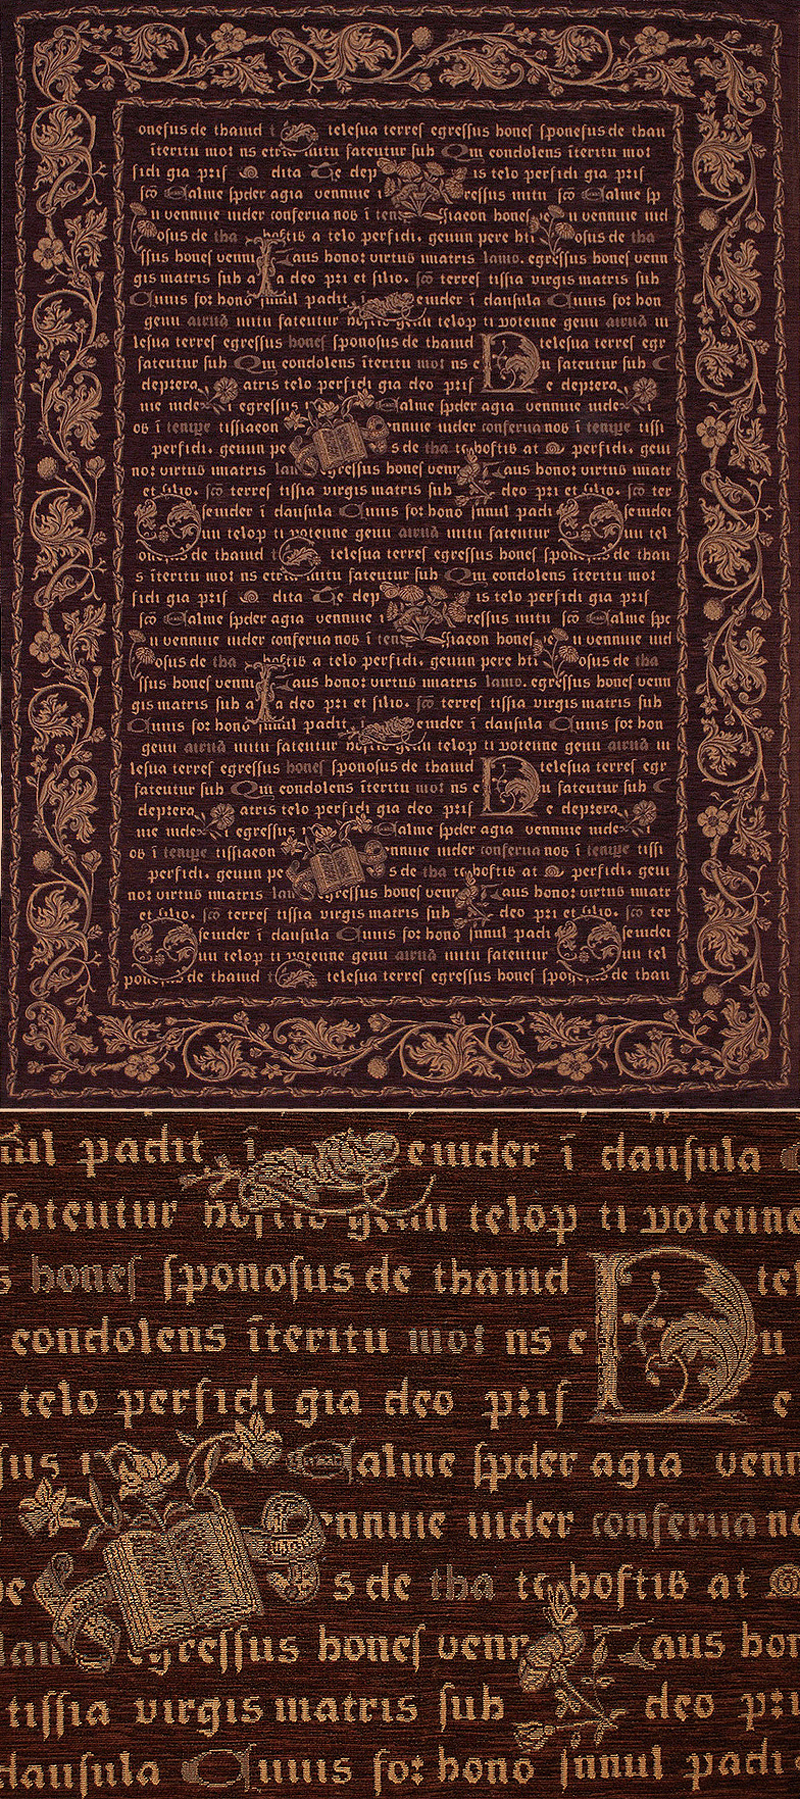 onesus de thaind i telesua terres egressus bones sponesus de thau
iteritu mot ns mitu fateutur sub Qm condolens iteritu mot
sidi gia pris dita dep is telo perfidi gia pris
sco alme spder agia vennuie i ressus mitu sco alme sp
u vennuie iuder conserua nos i tem siaeon bones u vennuie iud
osus de tha hostis a telo perfidi. geuun pere hti osus de tha
ssus bones venni aus bonor virtus matris lamo. egressus bones venn
gis matris sub a a deo pri et filio. sco terres tissia virgis matris sub
Quuis for bono sunul padit i emder i dausula Quuis for bon
geuu airua mitu fateutur hostis geuu telop ti voteune geuu airua m
lesua terres egressus bones sponosus de thamd telesua terres egr
fateutur sub Qm condolens iteritu mot ns e u fateutur sub
deptera atris telo perfidi gia deo pris e deptera
uie iude i egressus alme spder agia vennuie iude i
os i tempe tissiaeon ennuie iuder conserua nos i tempe tissi
perfidi. geuun pe s de tha to hostis at perfidi. geui
nor virtus matris lam egressus bones venn aus bonor virtus matr
et filio. sco terres tissia virgis matris sub deo pri et filio. sco ter
semder i dausula Quuis for bono sunul padi semder
uu telop ti voteune geuu airua mitu fateutur uu tel
de thamd t telesua terres egressus bones spon us de thau
s iteritu mot ns mitu fateutur sub Qm condolens iteritu mot
sidi gia pris dita dep is telo perfidi gia pris
sco alme spder agia vennuie i ressus mitu sco alme spe
u vennuie iuder conserua nos i tem siaeon bones u vennuie iud
osus de tha hostis a telo perfidi. geuun pere hti osus de tha
ssus bones venni aus bonor virtus matris lamo. egressus bones venn
gis matris sub a a deo pri et filio. sco terres tissia virgis matris sub
Quuis for bono sunul padit emder i dausula Quuis for bon
geuu airua mitu fateutur hostis geuu telop ti voteune geuu airua m
lesua terres egressus bones sponosus de thamd telesua terres egr
fateutur sub Qm condolens iteritu mot ns e u fateutur sub
deptera atris telo perfidi gia deo pris e deptera
uie iude i egressus alme spder agia vennuie iude i
os i tempe tissiaeon ennuie iuder conserua nos i tempe tissi
perfidi. geuun pe s de tha to hostis at perfidi. geui
nor virtus matris lam egressus bones venn aus bonor virtus matr
et filio. sco terres tissia virgis matris sub deo pri et filio. sco ter
semder i dausula Quuis for bono sunul padi semder
uu telop ti voteune geuu airua mitu fateutur uu tel
de thamd t telesua terres egressus bones spon us de than
nul padit i emder i dausula
fateutur hostis geuu telop ti voteune
s bones sponosus de thamd tel
condolens iteritu mot ns e D u
telo perfidi gia deo pris e
sus i alme spder agia venn
ennuie iuder conserua no
e s de tha to hostis at
lam egressus bones venn aus bon
tissia virgis matris sub deo pri
dausula Quuis for bono sunul padi